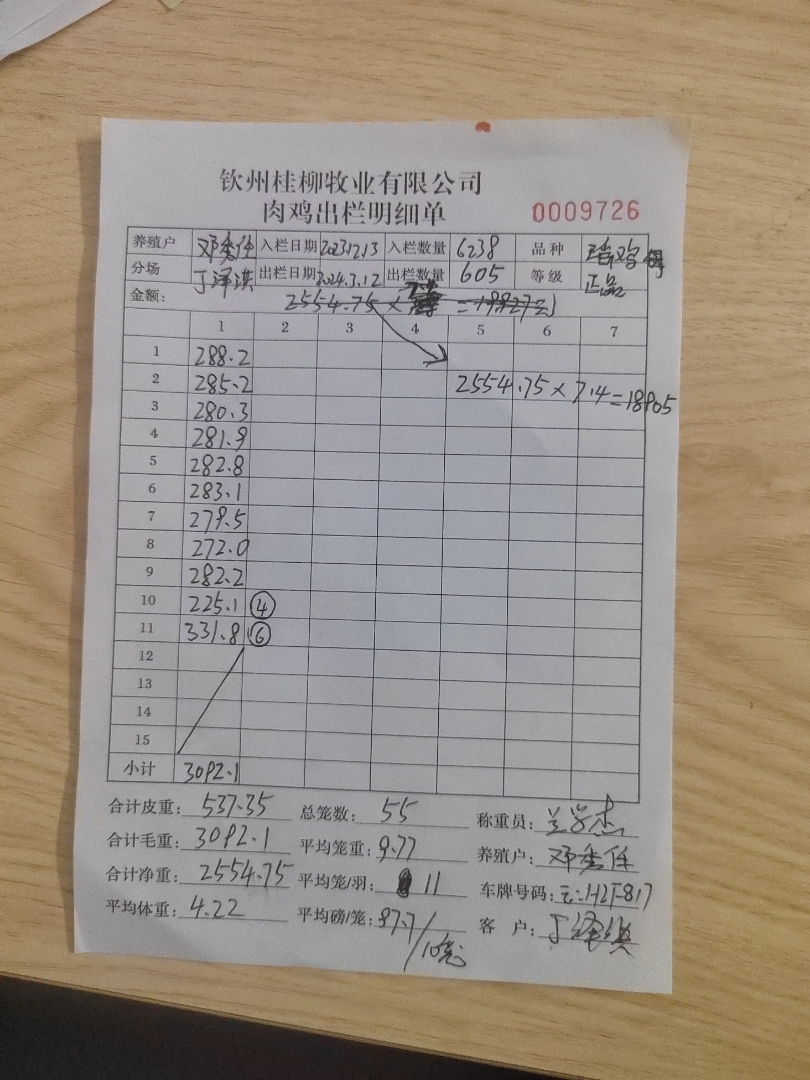 钦州桂柳牧业有限公司
肉鸡出栏明细单 0009726
养殖户 邓秀任 入栏日期 2023.12.13 入栏数量 6238 品种 鸡
分场 丁泽淇 出栏日期 2024.3.12 出栏数量 605 等级 正品
金额: 2554.75× =19927元
1 2 3 4 5 6 7
1 288.2
2 285.2 2554.75×7.4=18905
3 280.3
4 281.9
5 282.8
6 283.1
7 279.5
8 272.0
9 282.2
10 225.1 ④
11 331.8 ⑥
12
13
14
15
小计 3092.1
合计皮重: 537.35 总笼数: 55 称重员:
合计毛重: 3092.1 平均笼重: 9.77 养殖户: 邓秀任
合计净重: 2554.75 平均笼/羽: 11 车牌号码:
平均体重: 4.22 平均磅/笼: 97.7/10笼 客户: 丁泽淇